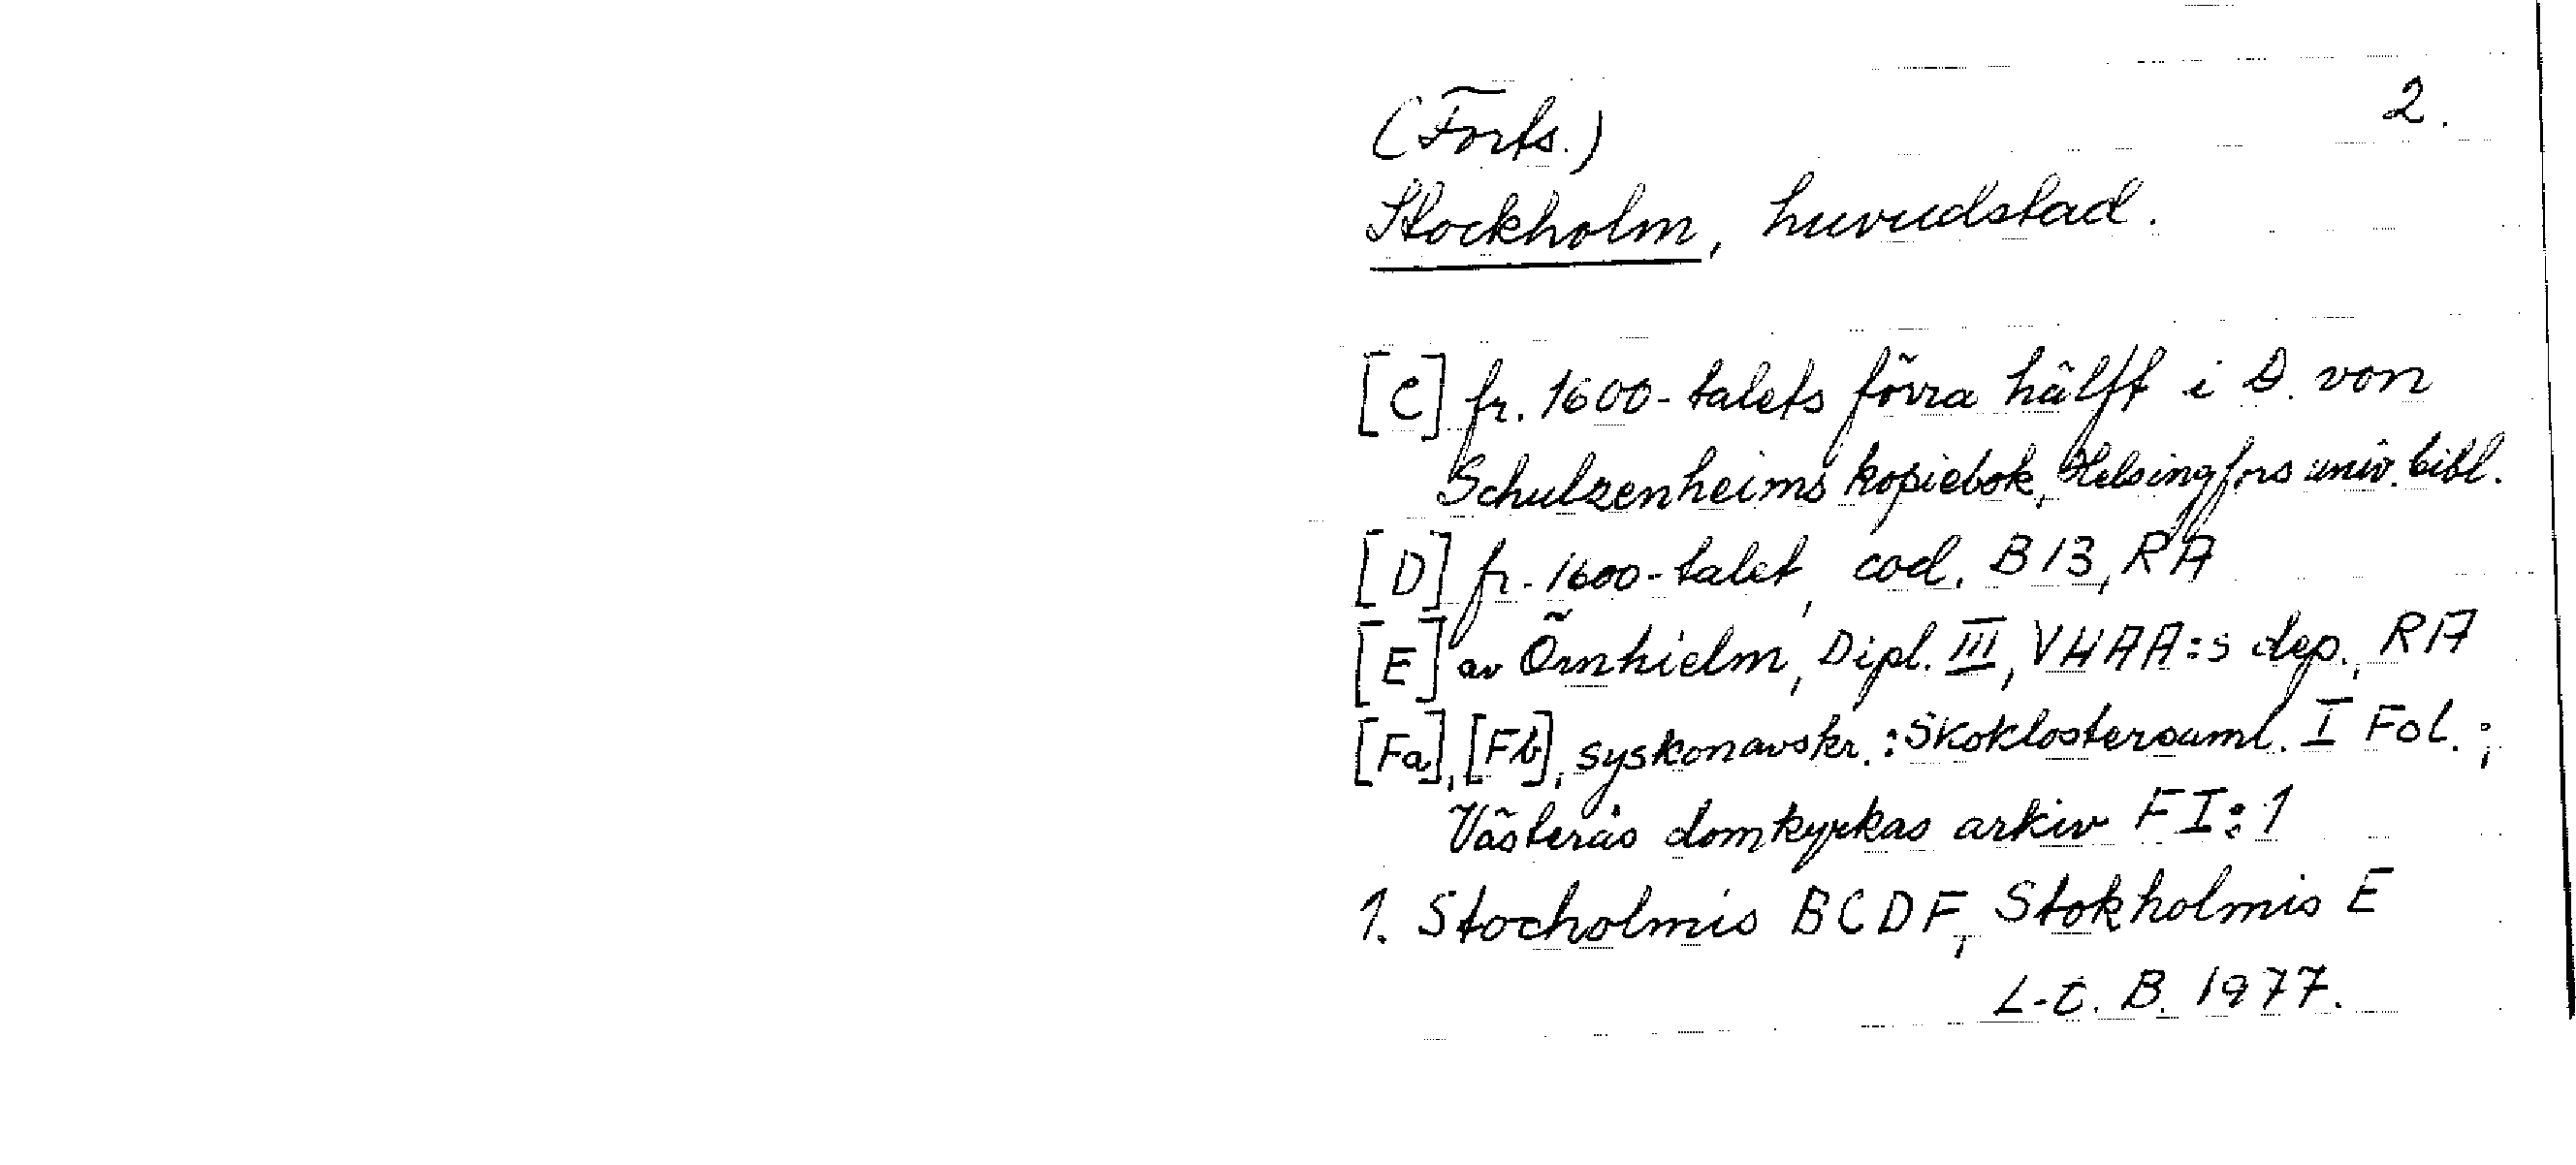 (Forts.) 2.
Stockholm, huvudstad.
[C] fr. 1600-talets förra hälft i D. von
Schulzenheims kopiebok, Helsingfors univ. bibl.
[D] fr. 1600-talet, cod. B 13, RA
[E] av Örnhielm, Dipl. III, VHAA:s dep., RA
[Fa], [Fb], syskonavskr.: Skoklostersaml. I Fol.;
Västerås domkyrkas arkiv F I:1
1. Stocholmis BCDF, Stokholmis E
L-E. B. 1977.